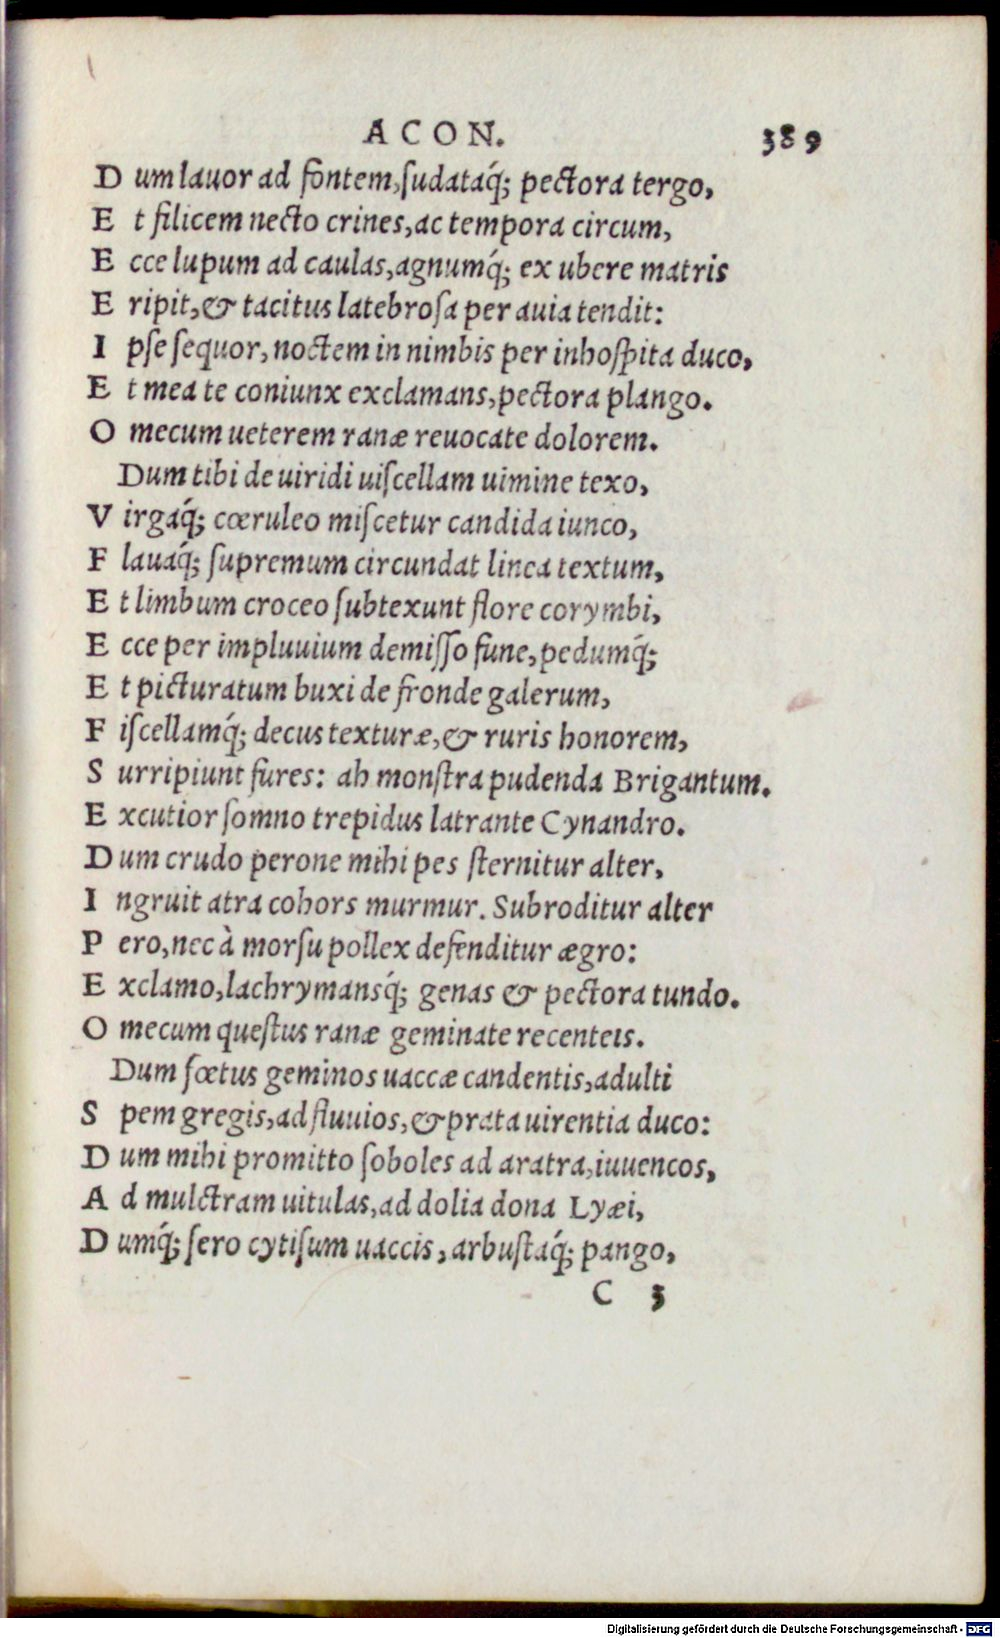 ACON. 389
D um lauor ad fontem, ſudataq́; pectora tergo,
E t filicem necto crines, ac tempora circum,
E cce lupum ad caulas, agnumq́; ex ubere matris
E ripit, & tacitus latebroſa per auia tendit:
I pſe ſequor, noctem in nimbis per inhoſpita duco,
E t mea te coniunx exclamans, pectora plango.
O mecum ueterem ranæ reuocate dolorem.
Dum tibi de uiridi uiſcellam uimine texo,
V irgaq́; cœruleo miſcetur candida iunco,
F lauaq́; ſupremum circundat linea textum,
E t limbum croceo ſubtexunt flore corymbi,
E cce per impluuium demiſſo fune, pedumq́;
E t picturatum buxi de fronde galerum,
F iſcellamq́; decus texturæ, & ruris honorem,
S urripiunt fures: ah monſtra pudenda Brigantum.
E xcutior ſomno trepidus latrante Cynandro.
D um crudo perone mihi pes ſternitur alter,
I ngruit atra cohors murmur. Subroditur alter
P ero, nec à morſu pollex defenditur ægro:
E xclamo, lachrymansq́; genas & pectora tundo.
O mecum queſtus ranæ geminate recenteis.
Dum fœtus geminos uaccæ candentis, adulti
S pem gregis, ad fluuios, & prata uirentia duco:
D um mihi promitto ſoboles ad aratra, iuuencos,
A d mulctram uitulas, ad dolia dona Lyæi,
D umq́; ſero cytiſum uaccis, arbuſtaq́; pango,
C 3
Digitalisierung gefördert durch die Deutsche Forschungsgemeinschaft - DFG